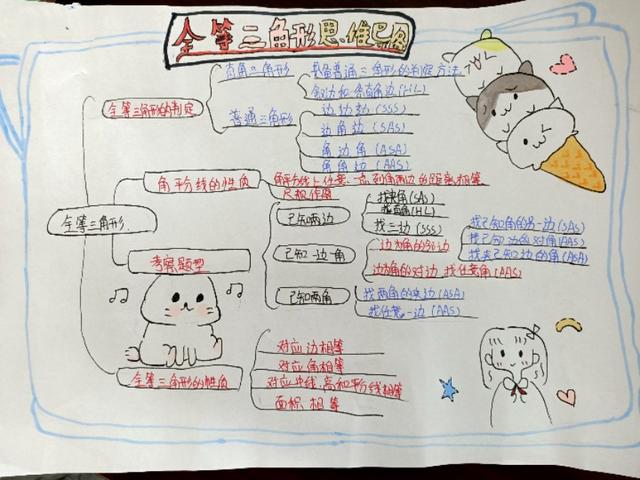 全等三角形思维导图
直角三角形
具备普通三角形的判定方法
斜边和一条直角边(HL)
全等三角形的判定
普通三角形
边边边(SSS)
边角边(SAS)
角边角(ASA)
角角边(AAS)
角平分线的性质
角平分线上任意一点到角两边的距离相等
尺规作图
全等三角形
考察题型
已知两边
找夹角(SAS)
找直角(HL)
找三边(SSS)
已知一边一角
边为角的邻边
找已知角的另一边(SAS)
找已知边的对角(AAS)
找夹已知边的角(ASA)
边为角的对边 找任意角(AAS)
已知两角
找两角的夹边(ASA)
找任意一边(AAS)
全等三角形的性质
对应边相等
对应角相等
对应中线、高和平分线相等
面积相等